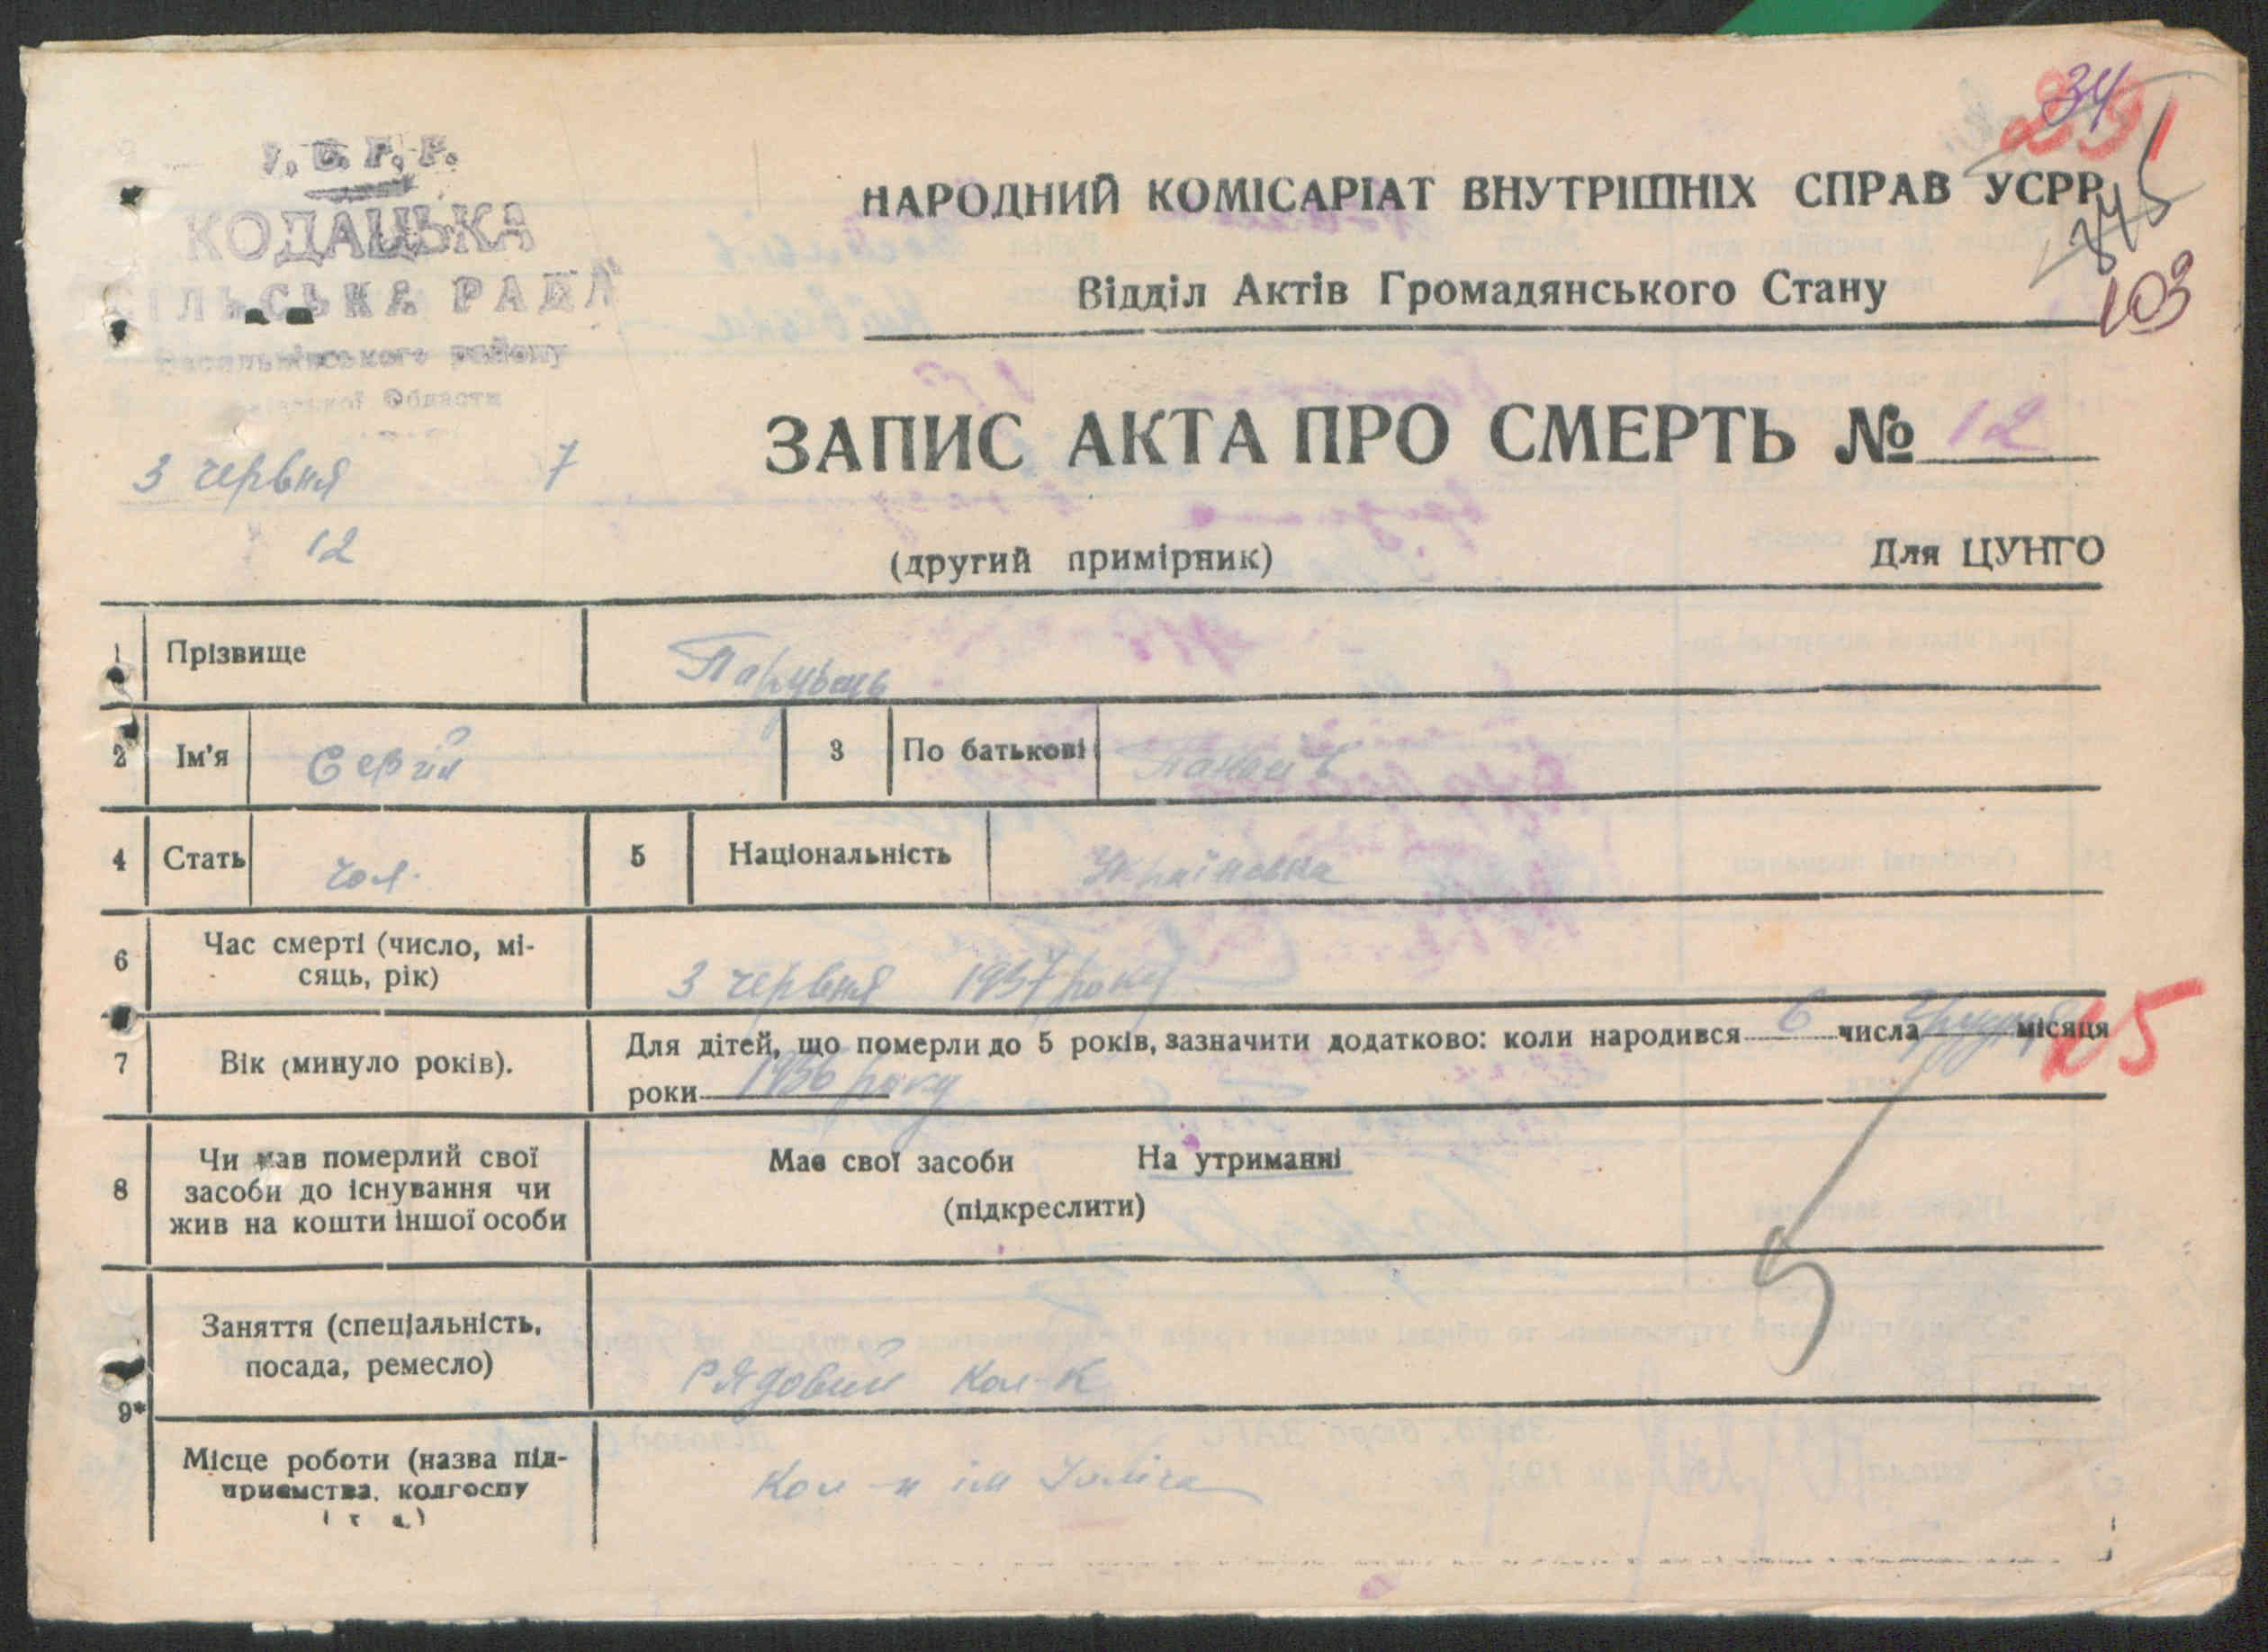 У. С. Р. Р.
КОДАЦЬКА
СІЛЬСЬКА РАДА
Васильківського району
Київської Області
3 червня 7
12
34
345
103
НАРОДНИЙ КОМІСАРІАТ ВНУТРІШНІХ СПРАВ УСРР
Відділ Актів Громадянського Стану
ЗАПИС АКТА ПРО СМЕРТЬ № 12
(другий примірник) Для ЦУНГО
1 Прізвище
2 Ім'я Сергій 3 По батькові Панасів
4 Стать чол. 5 Національність Українська
6 Час смерті (число, мі-
сяць, рік) 3 червня 1937 року
7 Вік (минуло років). Для дітей, що померли до 5 років, зазначити додатково: коли народився 6 числа грудня місяця
роки 1936 року
8 Чи мав померлий свої
засоби до існування чи
жив на кошти іншої особи
Має свої засоби На утриманні
(підкреслити)
9* Заняття (спеціальність,
посада, ремесло) Рядовий кол-к
Місце роботи (назва під-
приємства, колгоспу
і т. д.) Кол-п ім Ілліча